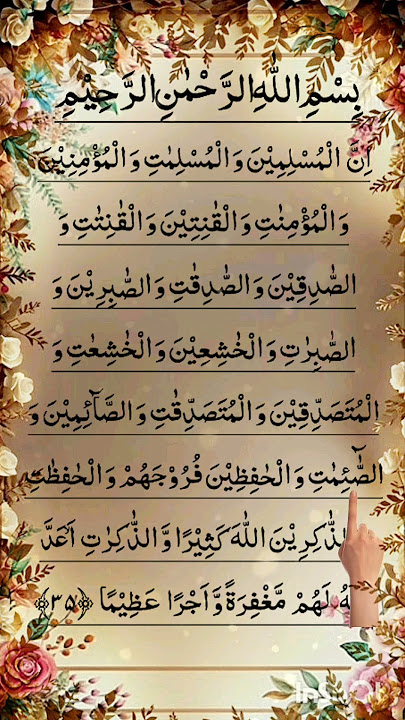 بِسْمِ اللّٰهِ الرَّحْمٰنِ الرَّحِيْمِ
اِنَّ الْمُسْلِمِيْنَ وَالْمُسْلِمٰتِ وَالْمُؤْمِنِيْنَ
وَالْمُؤْمِنٰتِ وَالْقٰنِتِيْنَ وَالْقٰنِتٰتِ وَ
الصّٰدِقِيْنَ وَالصّٰدِقٰتِ وَالصّٰبِرِيْنَ وَ
الصّٰبِرٰتِ وَالْخٰشِعِيْنَ وَالْخٰشِعٰتِ وَ
الْمُتَصَدِّقِيْنَ وَالْمُتَصَدِّقٰتِ وَالصَّآئِمِيْنَ وَ
الصّٰٓئِمٰتِ وَالْحٰفِظِيْنَ فُرُوْجَهُمْ وَالْحٰفِظٰتِ
الذّٰكِرِيْنَ اللّٰهَ كَثِيْرًا وَّالذّٰكِرٰتِ اَعَدَّ
لَهُمْ مَّغْفِرَةً وَّاَجْرًا عَظِيْمًا ﴿۳۵﴾